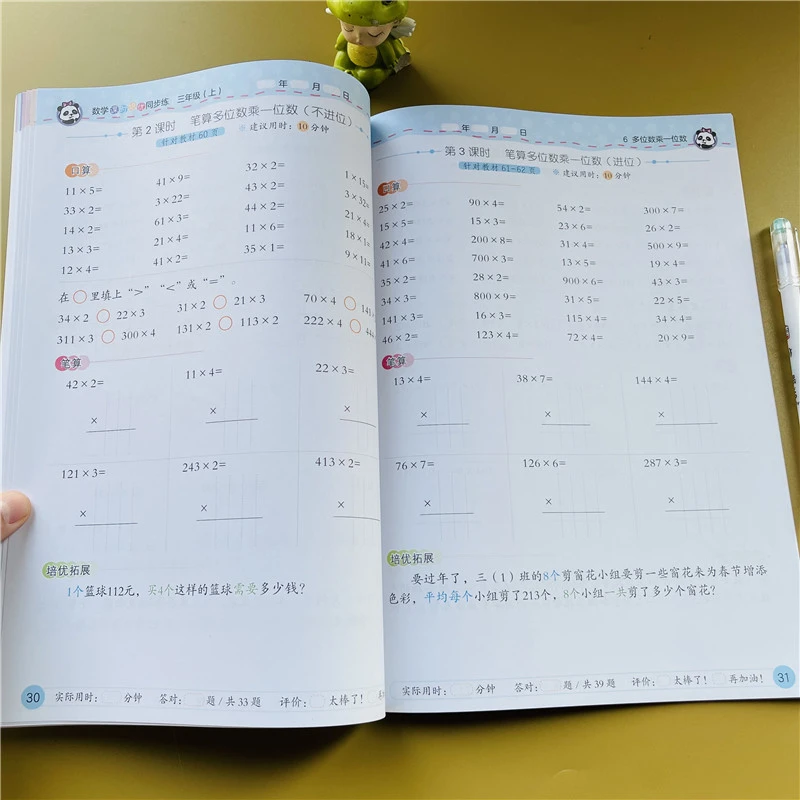 数学 同步练 三年级(上)
年 月 日
第2课时 笔算多位数乘一位数(不进位)
针对教材60页 ※建议用时:10分钟
口算
11×5= 41×9= 32×2= 1×15=
33×2= 3×22= 43×2= 3×32=
14×2= 61×3= 44×2= 21×4=
13×3= 21×4= 11×6= 18×1=
12×4= 41×2= 35×1= 9×11=
在○里填上“>”“<”或“=”。
34×2○22×3 31×2○21×3 70×4○
311×3○300×4 131×2○113×2 222×4○
笔算
42×2= 11×4= 22×3=
× × ×
121×3= 243×2= 413×2=
× × ×
培优拓展
1个篮球112元,买4个这样的篮球需要多少钱?
30 实际用时: 分钟 答对: 题/共33题 评价: 太棒了!
年 月 日
6 多位数乘一位数
第3课时 笔算多位数乘一位数(进位)
针对教材61-62页 ※建议用时:10分钟
口算
25×2= 90×4= 54×2= 300×7=
15×5= 15×3= 23×6= 26×2=
42×4= 200×8= 31×4= 500×9=
41×6= 700×3= 13×5= 19×4=
35×2= 28×2= 900×6= 43×3=
34×3= 800×9= 31×5= 22×5=
141×3= 16×3= 115×4= 34×4=
46×2= 123×4= 72×4= 20×9=
笔算
13×4= 38×7= 144×4=
× × ×
76×7= 126×6= 287×3=
× × ×
培优拓展
要过年了,三(1)班的8个剪窗花小组要剪一些窗花来为春节增添
色彩,平均每个小组剪了213个,8个小组一共剪了多少个窗花?
实际用时: 分钟 答对: 题/共39题 评价: 太棒了! 再加油! 31